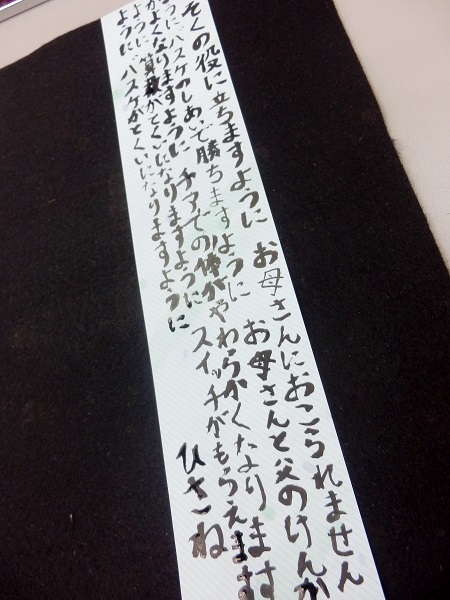 そくの役に立ちますように お母さんにおこられません
ようにバスケのしあいで勝ちますように お母さんと父のけんか
がよくなりますように チアでの体がやわらかくなります
ように 算数がとくいになりますように スイッチがもらえます
ように バスケがとくいになりますように
ひさね